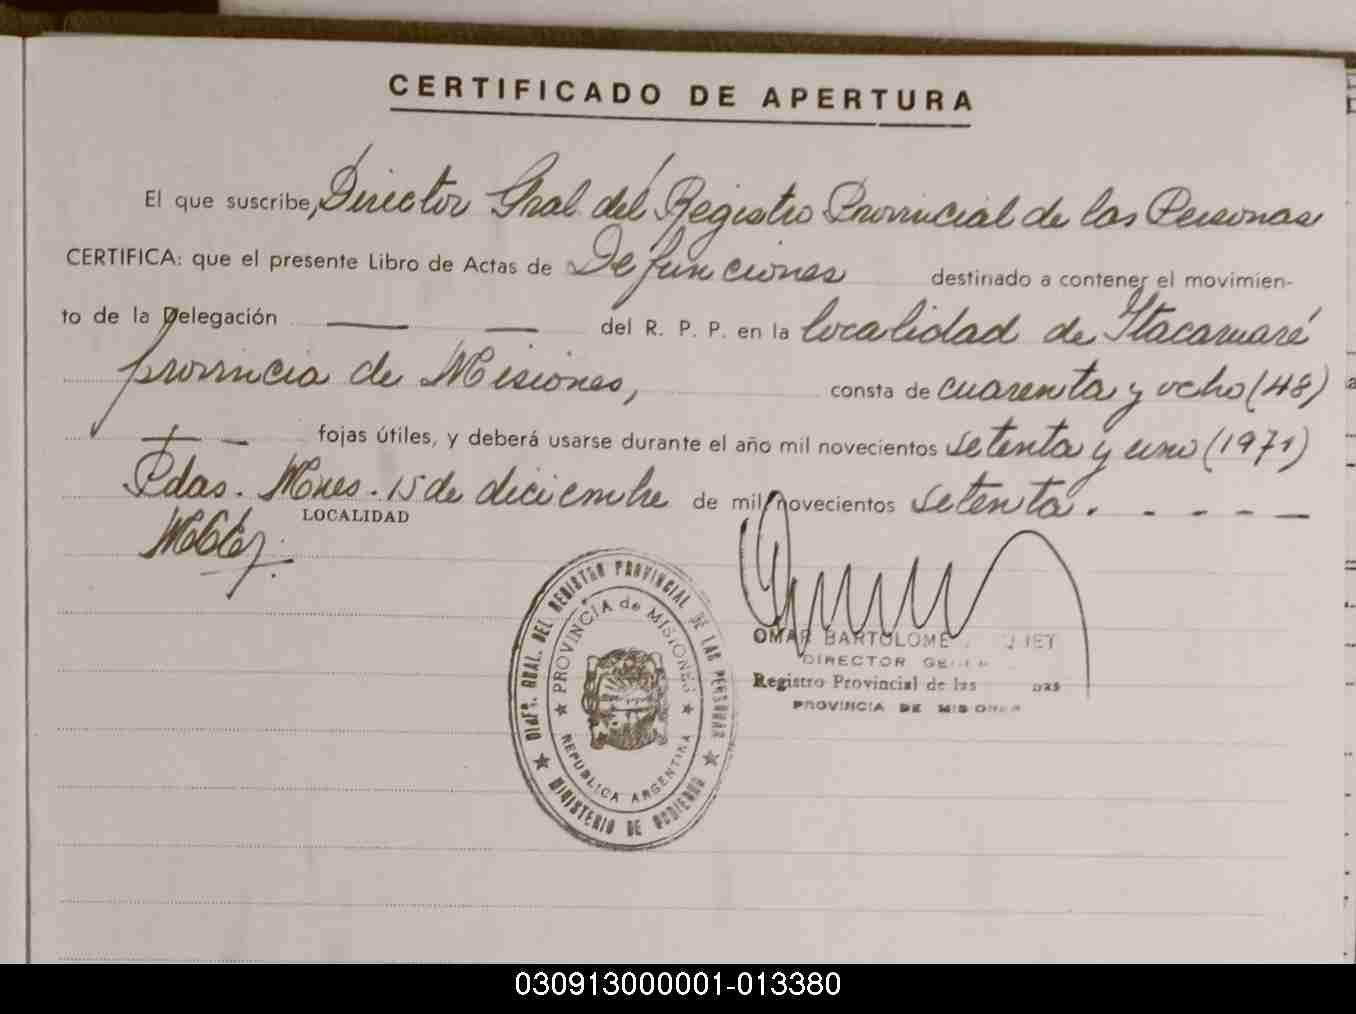 CERTIFICADO DE APERTURA
El que suscribe, Director Gral. del Registro Provincial de las Personas
CERTIFICA: que el presente Libro de Actas de Defunciones destinado a contener el movimien-
to de la Delegación — — del R. P. P. en la localidad de Itacaruaré
provincia de Misiones, consta de cuarenta y ocho (48)
— — fojas útiles, y deberá usarse durante el año mil novecientos setenta y uno (1971)
Pdas. Mnes. 15 de diciembre de mil novecientos setenta. - - - -
LOCALIDAD
DIREC. GRAL. DEL REGISTRO PROVINCIAL DE LAS PERSONAS
PROVINCIA de MISIONES
REPUBLICA ARGENTINA
MINISTERIO DE GOBIERNO
OMAR BARTOLOME
DIRECTOR
Registro Provincial de las
PROVINCIA DE MISIONES
030913000001-013380